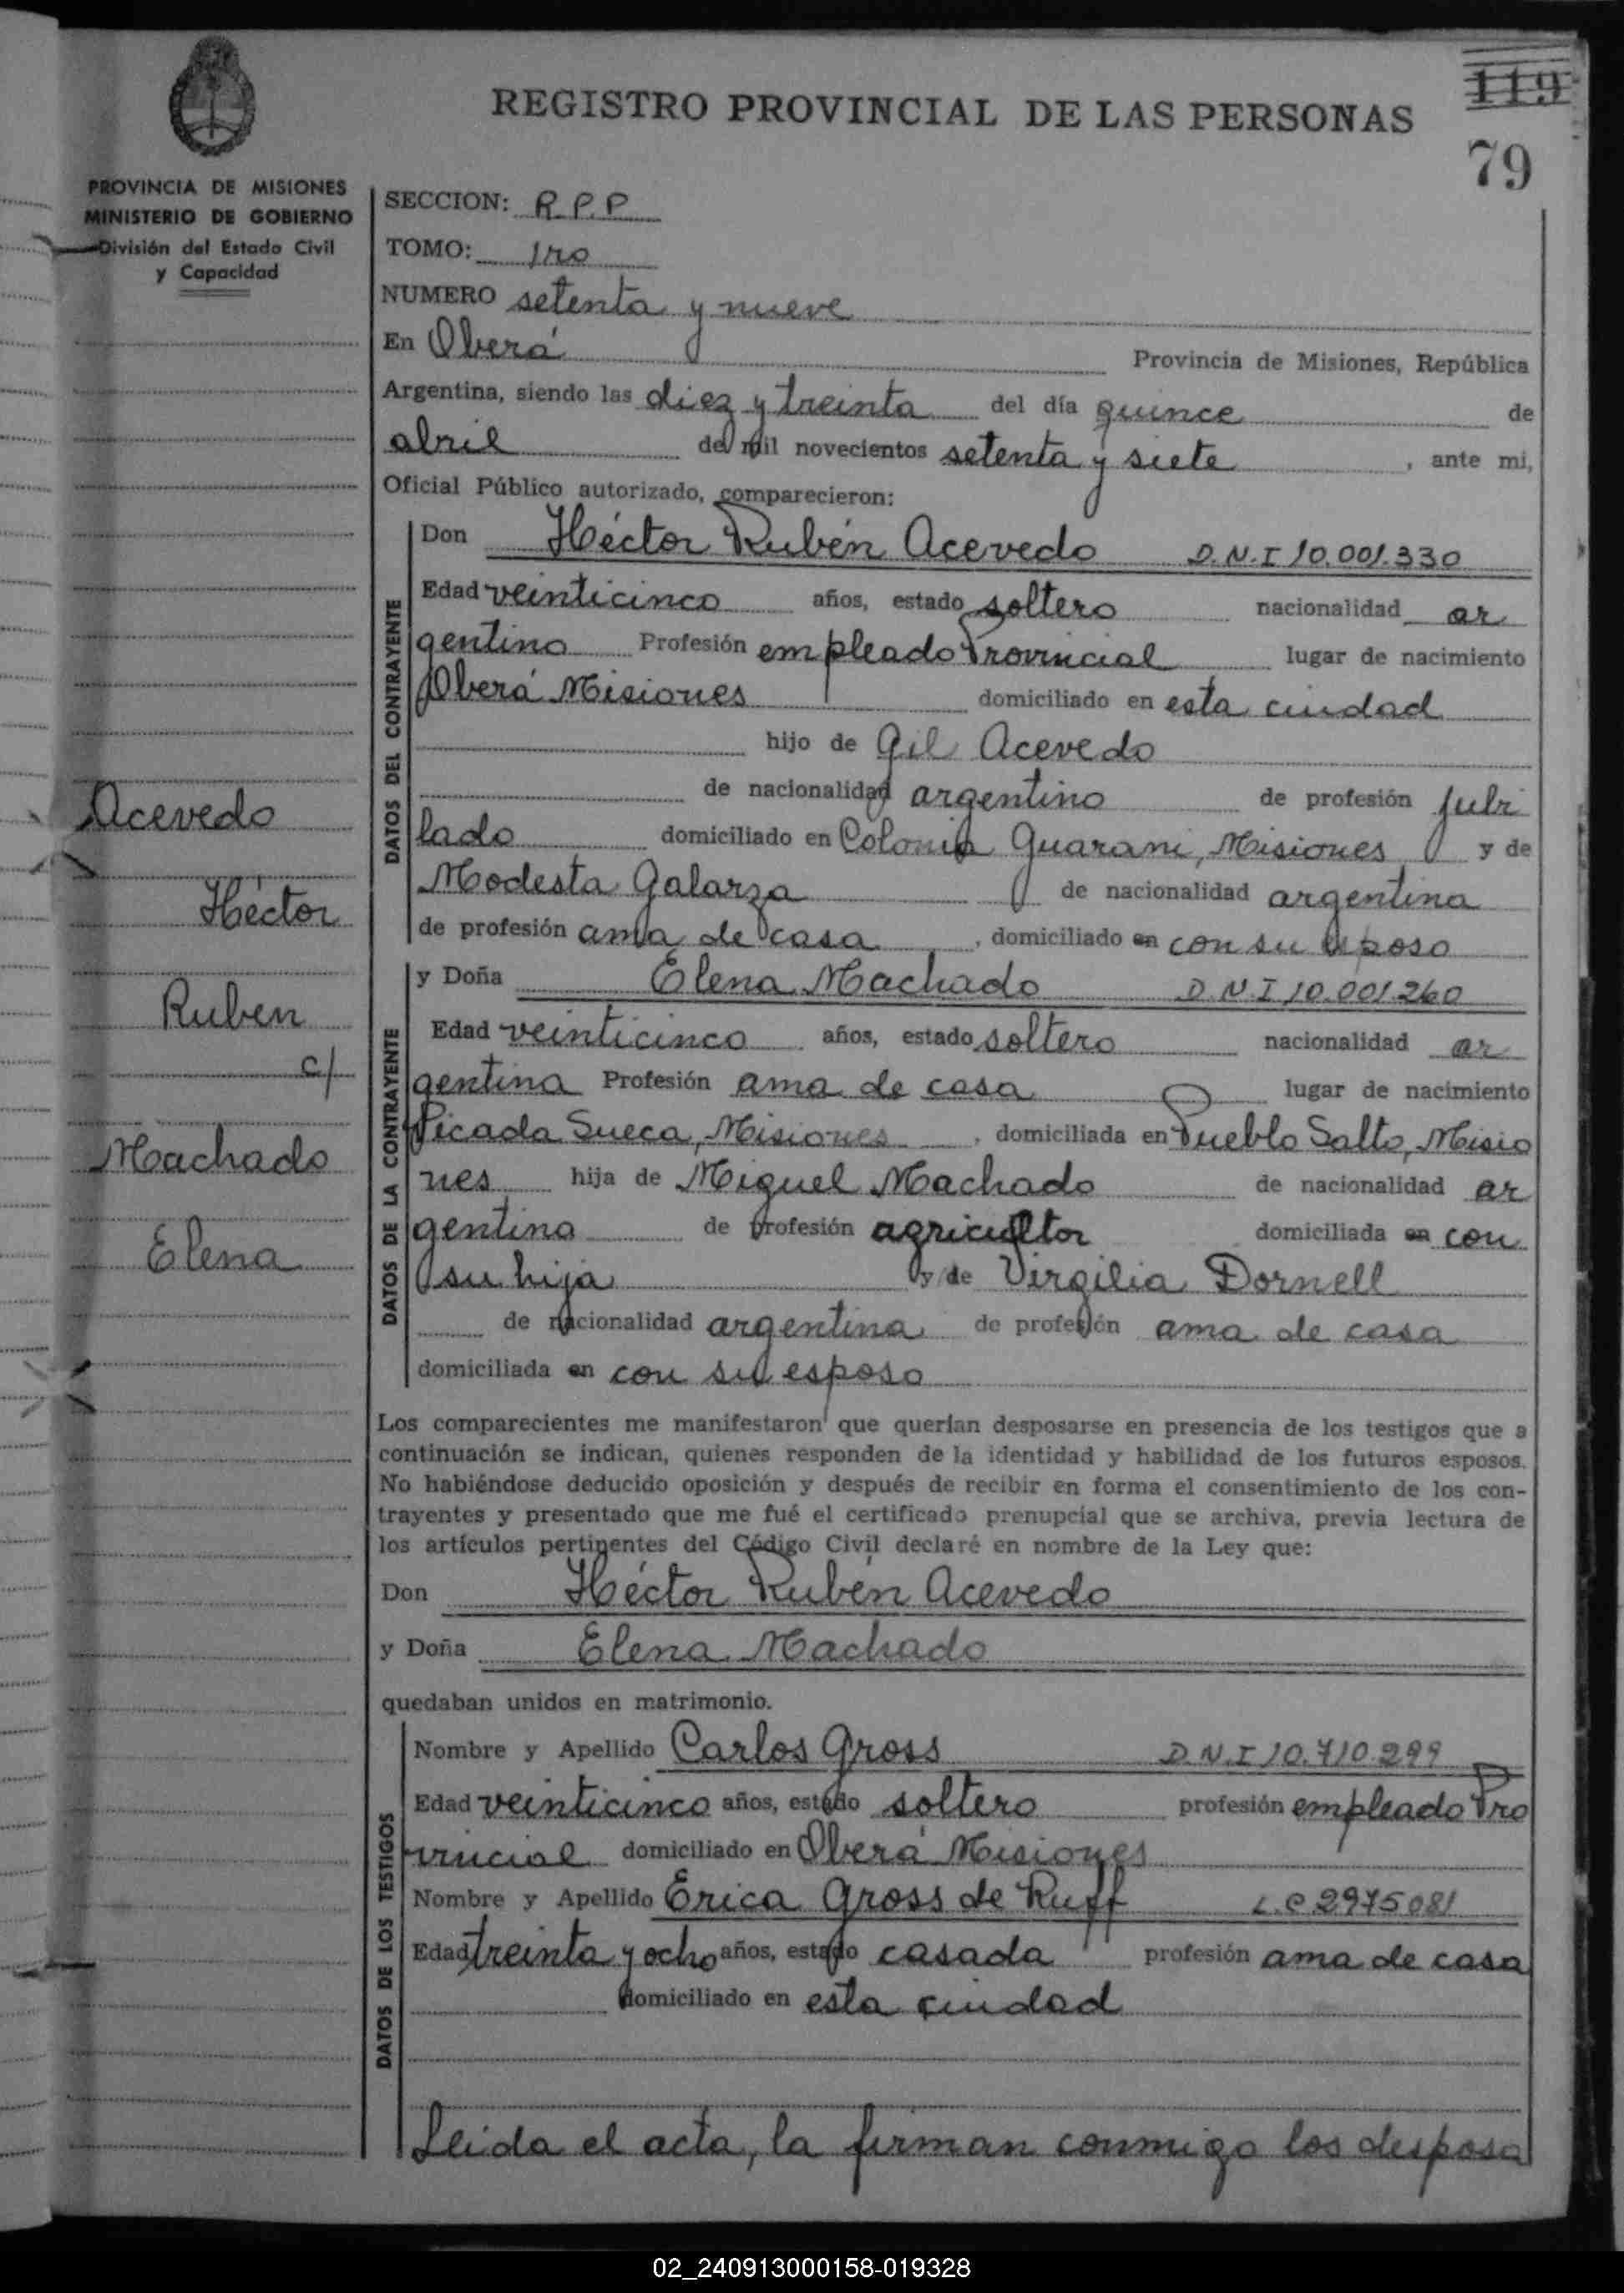 119
REGISTRO PROVINCIAL DE LAS PERSONAS
79
PROVINCIA DE MISIONES
MINISTERIO DE GOBIERNO
División del Estado Civil
y Capacidad
SECCION: R.P.P
TOMO: 1ro
NUMERO setenta y nueve
En Oberá Provincia de Misiones, República
Argentina, siendo las diez y treinta del día quince de
abril de mil novecientos setenta y siete, ante mi,
Oficial Público autorizado, comparecieron:
DATOS DEL CONTRAYENTE
Don Héctor Rubén Acevedo D.N.I 10.001.330
Edad veinticinco años, estado soltero nacionalidad ar
gentino Profesión empleado Provincial lugar de nacimiento
Oberá Misiones domiciliado en esta ciudad
hijo de Gil Acevedo
de nacionalidad argentino de profesión jubi
lado domiciliado en Colonia Guarani, Misiones y de
Modesta Galarza de nacionalidad argentina
de profesión ama de casa, domiciliado en con su esposo
Acevedo
Héctor
Ruben
c/
Machado
Elena
DATOS DE LA CONTRAYENTE
y Doña Elena Machado D.N.I 10.001.260
Edad veinticinco años, estado soltera nacionalidad ar
gentina Profesión ama de casa lugar de nacimiento
Picada Sueca, Misiones, domiciliada en Pueblo Salto, Misio
nes hija de Miguel Machado de nacionalidad ar
gentino de profesión agricultor domiciliada en con
su hija y de Virgilia Dornell
de nacionalidad argentina de profesión ama de casa
domiciliada en con su esposo
Los comparecientes me manifestaron que querían desposarse en presencia de los testigos que a
continuación se indican, quienes responden de la identidad y habilidad de los futuros esposos.
No habiéndose deducido oposición y después de recibir en forma el consentimiento de los con-
trayentes y presentado que me fué el certificado prenupcial que se archiva, previa lectura de
los artículos pertinentes del Código Civil declaré en nombre de la Ley que:
Don Héctor Rubén Acevedo
y Doña Elena Machado
quedaban unidos en matrimonio.
DATOS DE LOS TESTIGOS
Nombre y Apellido Carlos Gross D.N.I 10.710.299
Edad veinticinco años, estado soltero profesión empleado Pro
vincial domiciliado en Oberá Misiones
Nombre y Apellido Erica Gross de Ruff L.C 2975081
Edad treinta y ocho años, estado casada profesión ama de casa
domiciliado en esta ciudad
Leida el acta, la firman conmigo los desposa
02_240913000158-019328